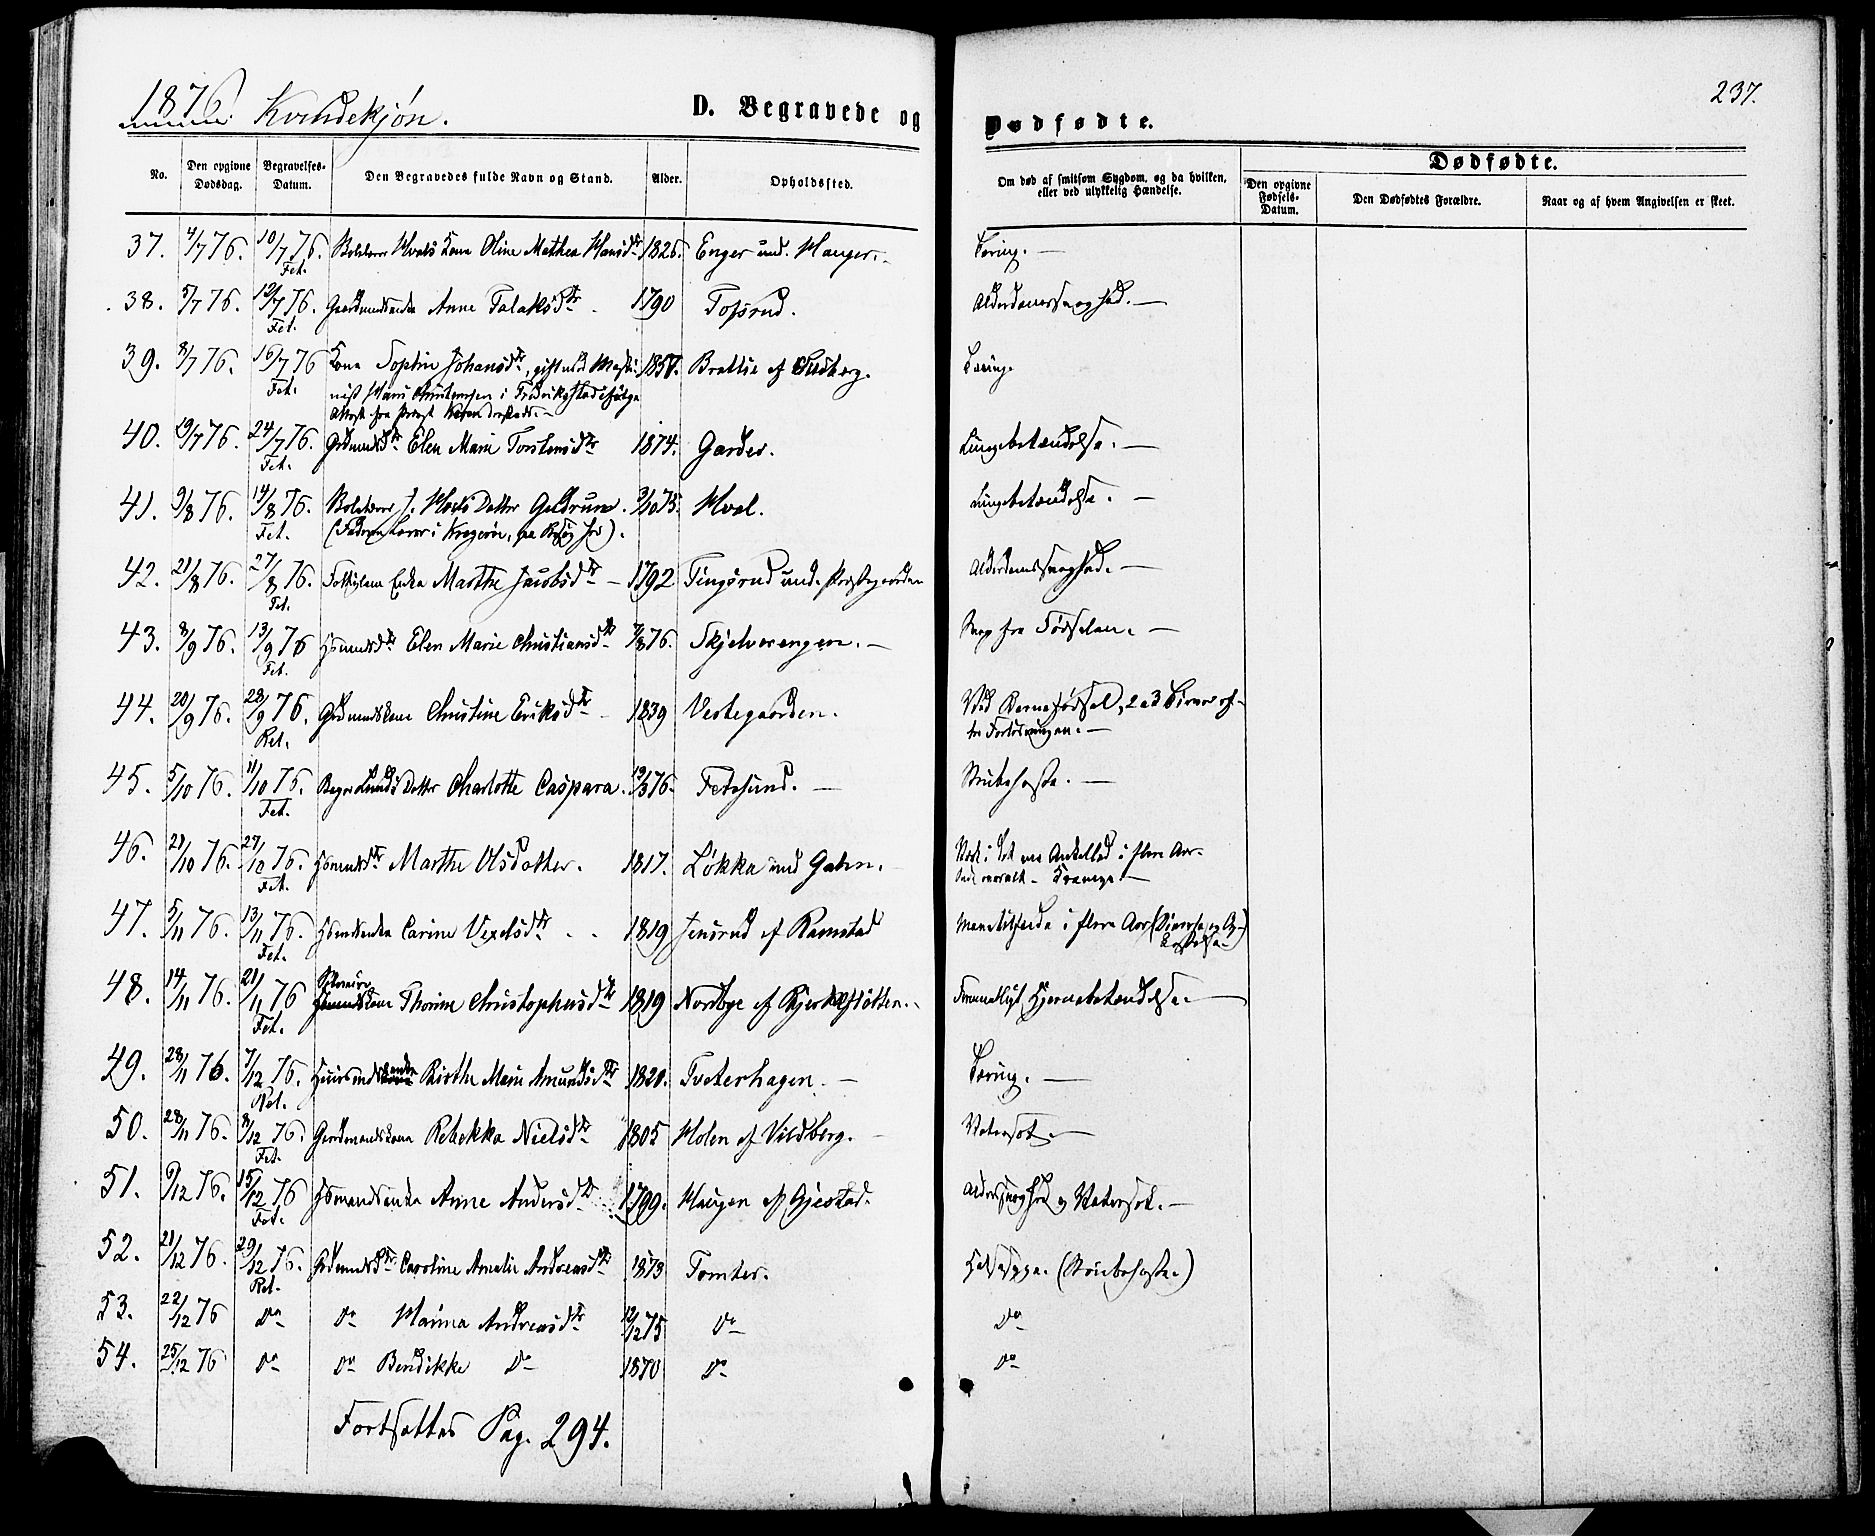 1876. Kvindekjøn.
D. Begravede og Dødfødte.
237.
No.
Den opgivne Dødsdag.
Begravelses-Datum.
Den Begravedes fulde Navn og Stand.
Alder.
Opholdssted.
Om død af smitsom Sygdom, og da hvilken, eller ved ulykkelig Hændelse.
Dødfødte.
Den opgivne Fødsels-Datum.
Den Dødfødtes Forældre.
Naar og af hvem Angivelsen er skeet.
37. 4/7 76. 10/7 76. Fet. Kone Oline Mathea Hansdtr 1826. Enger und. Hauger. Tæring.
38. 5/7 76. 12/7 76. Fet. Gaardmandsenke Anne Falaksdtr 1790 Tofsrud. Alderdomssvaghed.
39. 8/7 76. 16/7 76 Fet. Kone Sophie Johansdtr, gift med
i Fredrikstad
Tæring.
40. 19/7 76. 24/7 76. Fet. Grdmandsdtr Elen Marie Torstensdtr 1874. Garder. Lungebetændelse.
41. 9/8 76. 14/8 76. Fet. Datter Gudrun. 3/10 75. Hval. Lungebetændelse.
i Kragerøe,
42. 21/8 76. 27/8 76. Fet. Enke Marthe Jacobsdtr 1792 Tingsrud und. Præstegaarden Alderdomssvaghed.
43. 8/9 76. 13/9 76 Fet. Hsmandsdtr Elen Marie Christiansdtr 7/8 76. Skjelverengen. Svag fra Fødselen.
44. 20/9 76. 28/9 76. Ret. Grdmandskone Christine Eriksdtr 1839 Vestegaarden. Ved Barnefødsel, 2 a 3 Timer ef-
ter Forløsningen.
45. 5/10 76. 11/10 76. Fet. Lunds Datter Charlotte Caspara. 19/3 76. Fetsund. Strubehoste.
46. 21/10 76. 27/10 76. Fet. Marthe Olsdatter. 1817. Løkka und Galen. i flere Aar.
Krampe.
47. 5/11 76. 13/11 76. Fet. Hsmdsenke Carine Vexelsdtr 1819 Jensrud af Ramstad i flere Aar
48. 14/11 76. 21/11 76 Fet. Thorine Christophersdtr 1819 Nordbye af Kjerkestøtten. Hjernebetændelse.
49. 28/11 76. 7/12 76. Ret. Huusmandsenke Birthe Marie Amundsdtr 1820. Tveterhagen. Tæring.
50. 28/11 76. 8/12 76. Fet. Gaardmandskone Rebekka Nielsdtr 1805 Holen af Vildberg. Vatersot.
51. 9/12 76. 15/12 76 Fet. Hsmandsenke Anne Andersdtr 1799. Haugen af Gjestad. Alderssvaghed og Vatersot.
52. 21/12 76. 29/12 76. Ret. Grdmandsdtr Caroline Amalie Andreasdtr 1873 Tomter. Halssyge. (Strubehoste.)
53. 22/12 76 Do Do Marina Andreasdtr 12/12 75 Do Do
54. 25/12 76 Do Do Bendikke Do 1870 Do Do
Fortsættes Pag. 294.